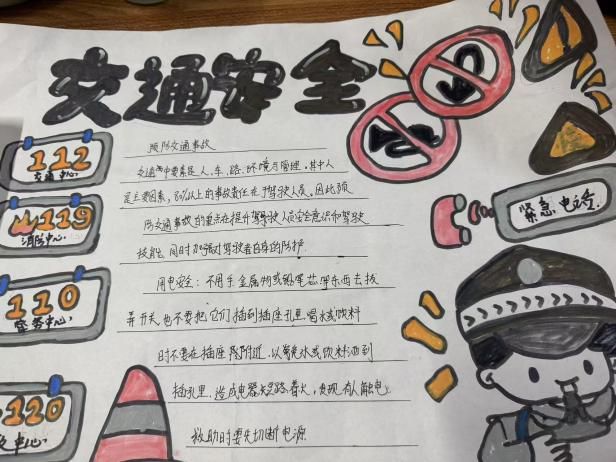 交通安全
112
交通中心
119
消防中心
110
警务中心
120
中心
紧急电话
预防交通事故
交通中要素是人、车、路、环境与管理,其中人
是主要因素,80%以上的事故责任在于驾驶人员,因此预
防交通事故的重点在提升驾驶人员安全意识和驾驶
技能,同时加强对驾驶者自身的防护.
用电安全:不用手、金属物或铅笔芯等东西去拨
弄开关,也不要把它们插到插座孔里.喝水或饮料
时不要在插座附近,以免水或饮料洒到
插孔里,造成电器短路着火,发现有人触电,
救助时要先切断电源.